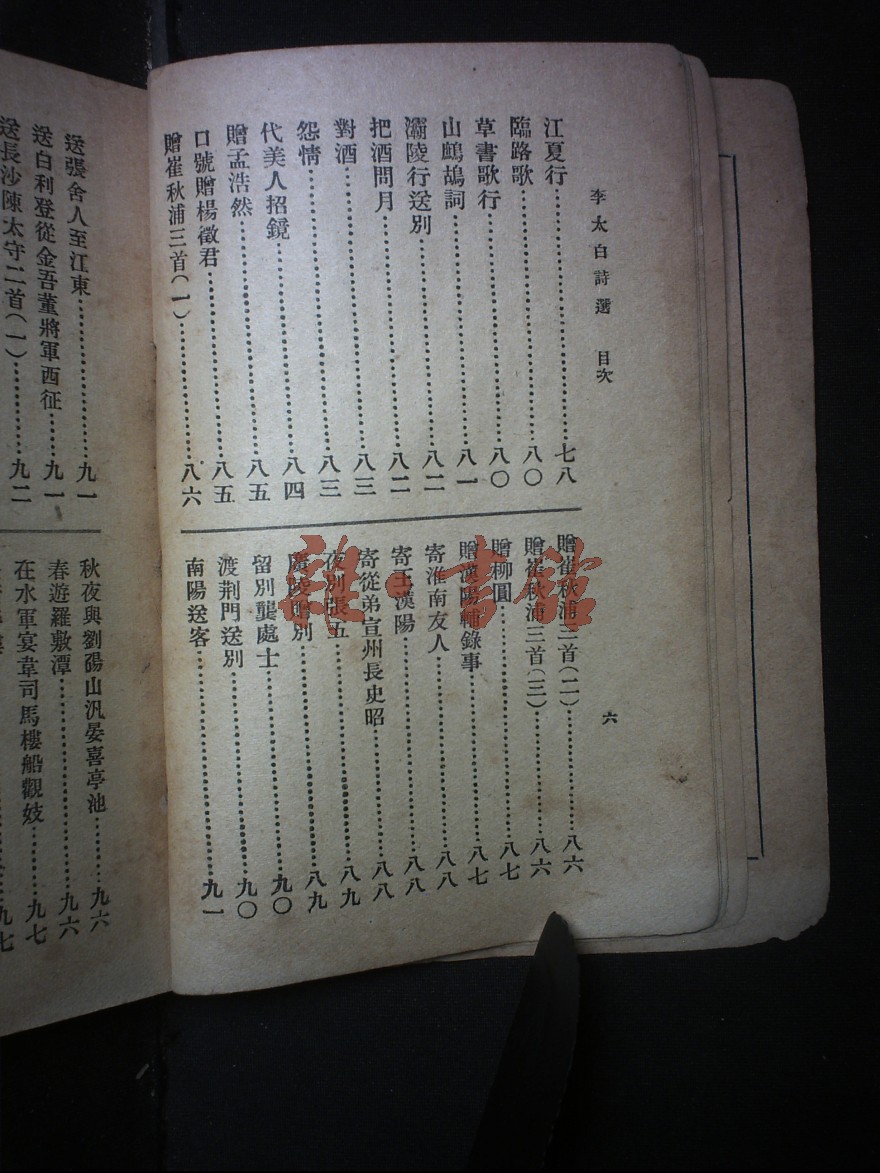 李太白詩選　目次
六
江夏行……七八
臨路歌……八〇
草書歌行……八〇
山鷓鴣詞……八一
灞陵行送別……八二
把酒問月……八二
對酒……八三
怨情……八三
代美人招鏡……八四
贈孟浩然……八五
口號贈楊徵君……八五
贈崔秋浦三首(一)……八六
贈崔秋浦三首(二)……八六
贈崔秋浦三首(三)……八六
贈柳圓……八七
贈漢陽輔錄事……八七
寄淮南友人……八八
寄王漢陽……八八
寄從弟宣州長史昭……八八
夜別張五……八九
廣陵贈別……八九
留別龔處士……九〇
渡荆門送別……九〇
南陽送客……九一
送張舍人至江東……九一
送白利登從金吾董將軍西征……九一
送長沙陳太守二首(一)……九二
秋夜與劉碭山汎晏喜亭池……九六
春遊羅敷潭……九六
在水軍宴韋司馬樓船觀妓……九七
九七
雜·書館